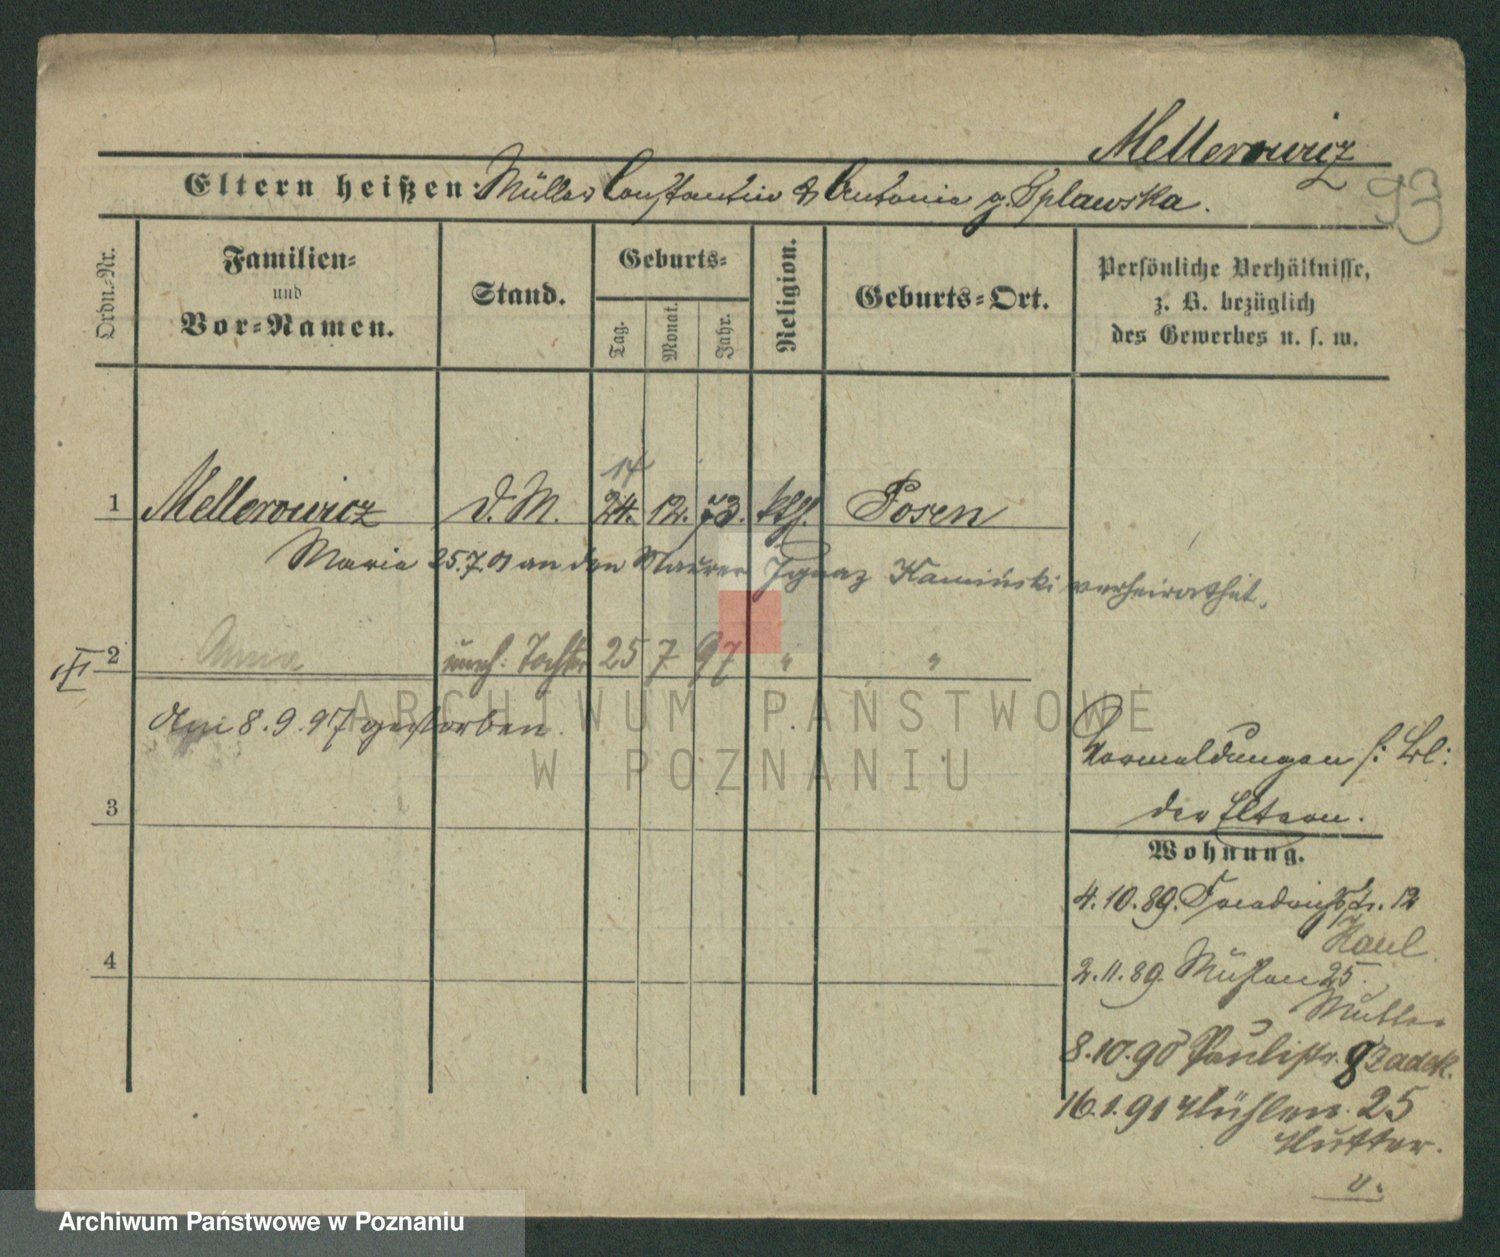 Mellerowicz
93
Eltern heißen: Müller Constantin & Antonie g. Splawska.
Ordn.-Nr.
Familien-
und
Vor-Namen.
Stand.
Geburts-
Tag.
Monat.
Jahr.
Religion.
Geburts-Ort.
Persönliche Verhältnisse,
z. B. bezüglich
des Gewerbes u. s. w.
14
1 Mellerowicz d. M. 24. 12. 73. kth. Posen
Maria 25.7.9 an den Maurer Ignaz Kamiński verheirathet.
2 Anna unehl. Tochter 25 7 97 " "
am 8.9.97 gestorben.
ARCHIWUM PAŃSTWOWE
W POZNANIU
Vormeldungen s:
der Eltern.
3
Wohnung.
4.10.89. 12
4
2.11.89. Mühlen 25.
Mutter
8.10.90 Paulistr. 8 Zadek.
16.1.91 Mühlen. 25
Mutter.
Archiwum Państwowe w Poznaniu